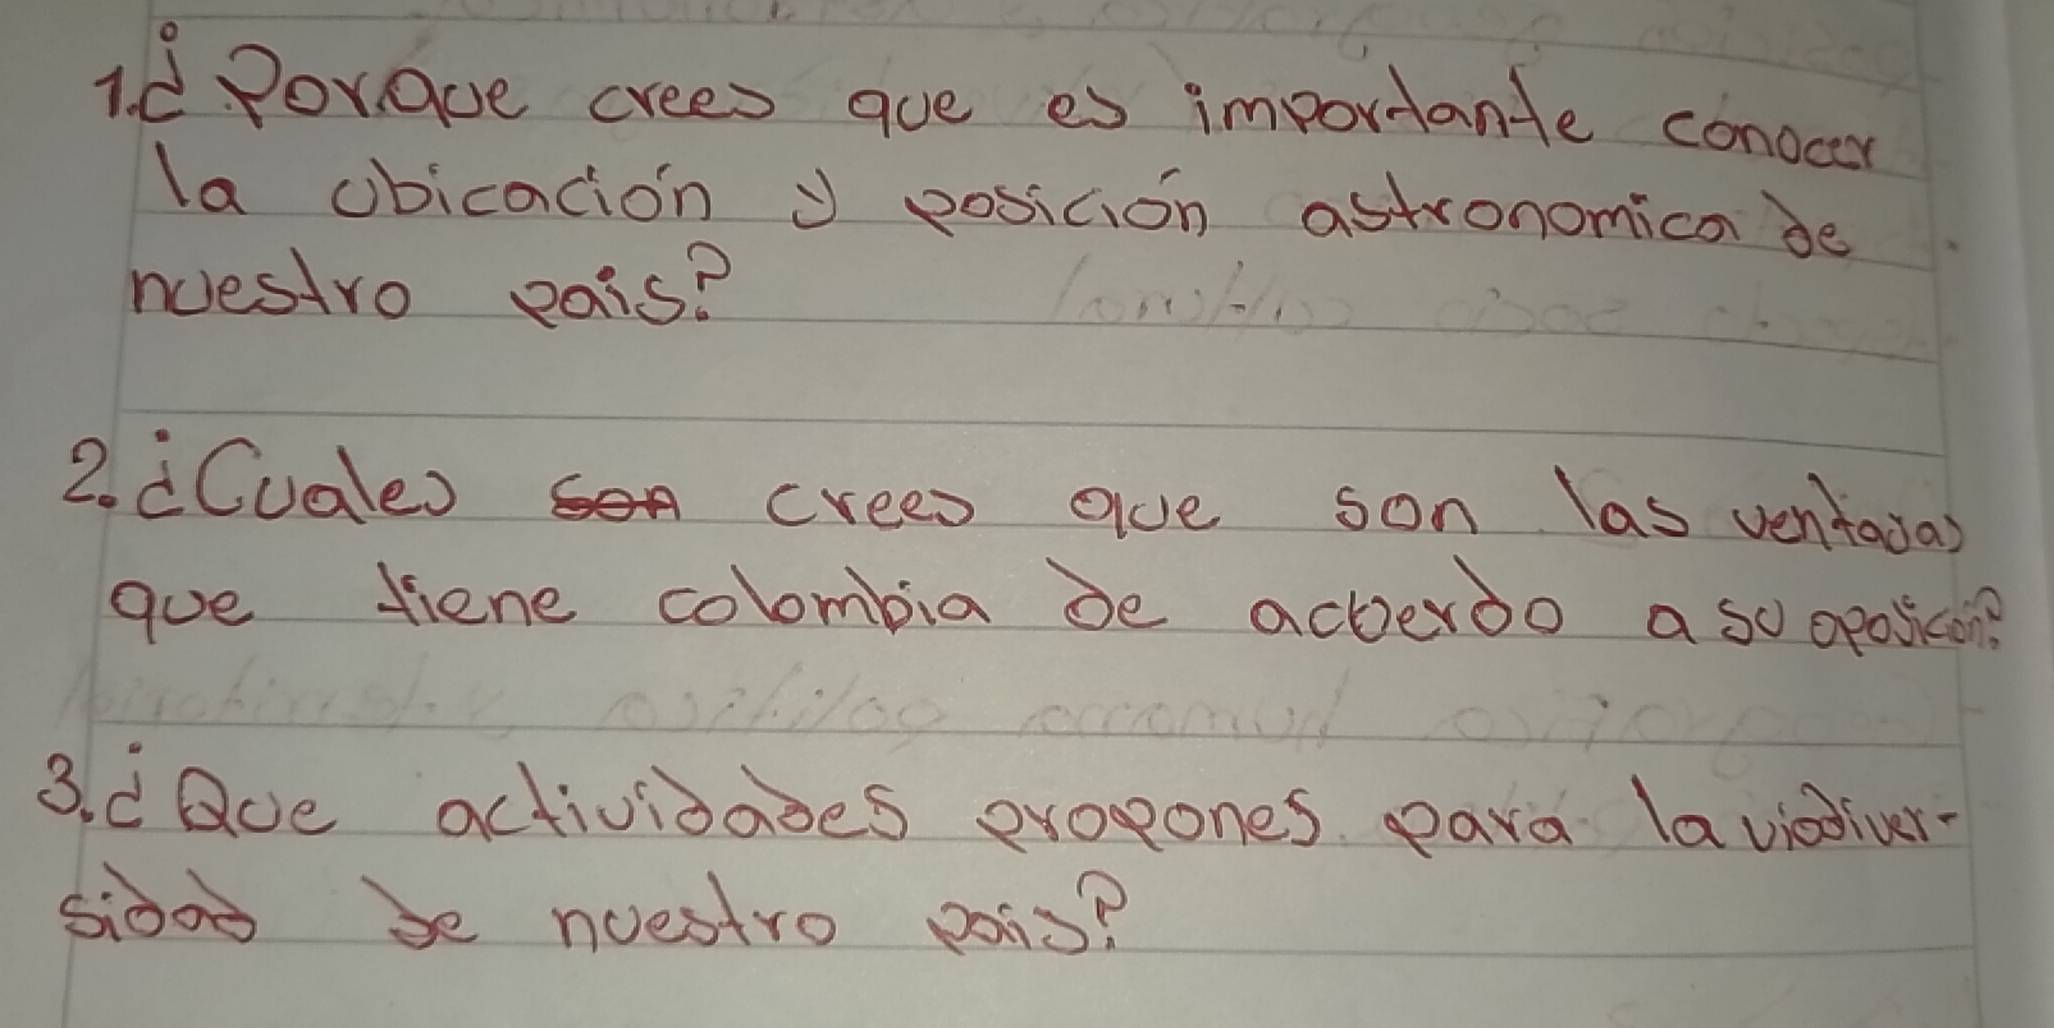 1.¿Porque crees que es importante conocer
la ubicación y posición astronomica de
nuestro pais?
2.¿Cuales son crees que son las ventajas
que tiene colombia de acuerdo a su oposicon?
3.¿Que actividades propones para la viodiver-
sidad de nuestro pais?